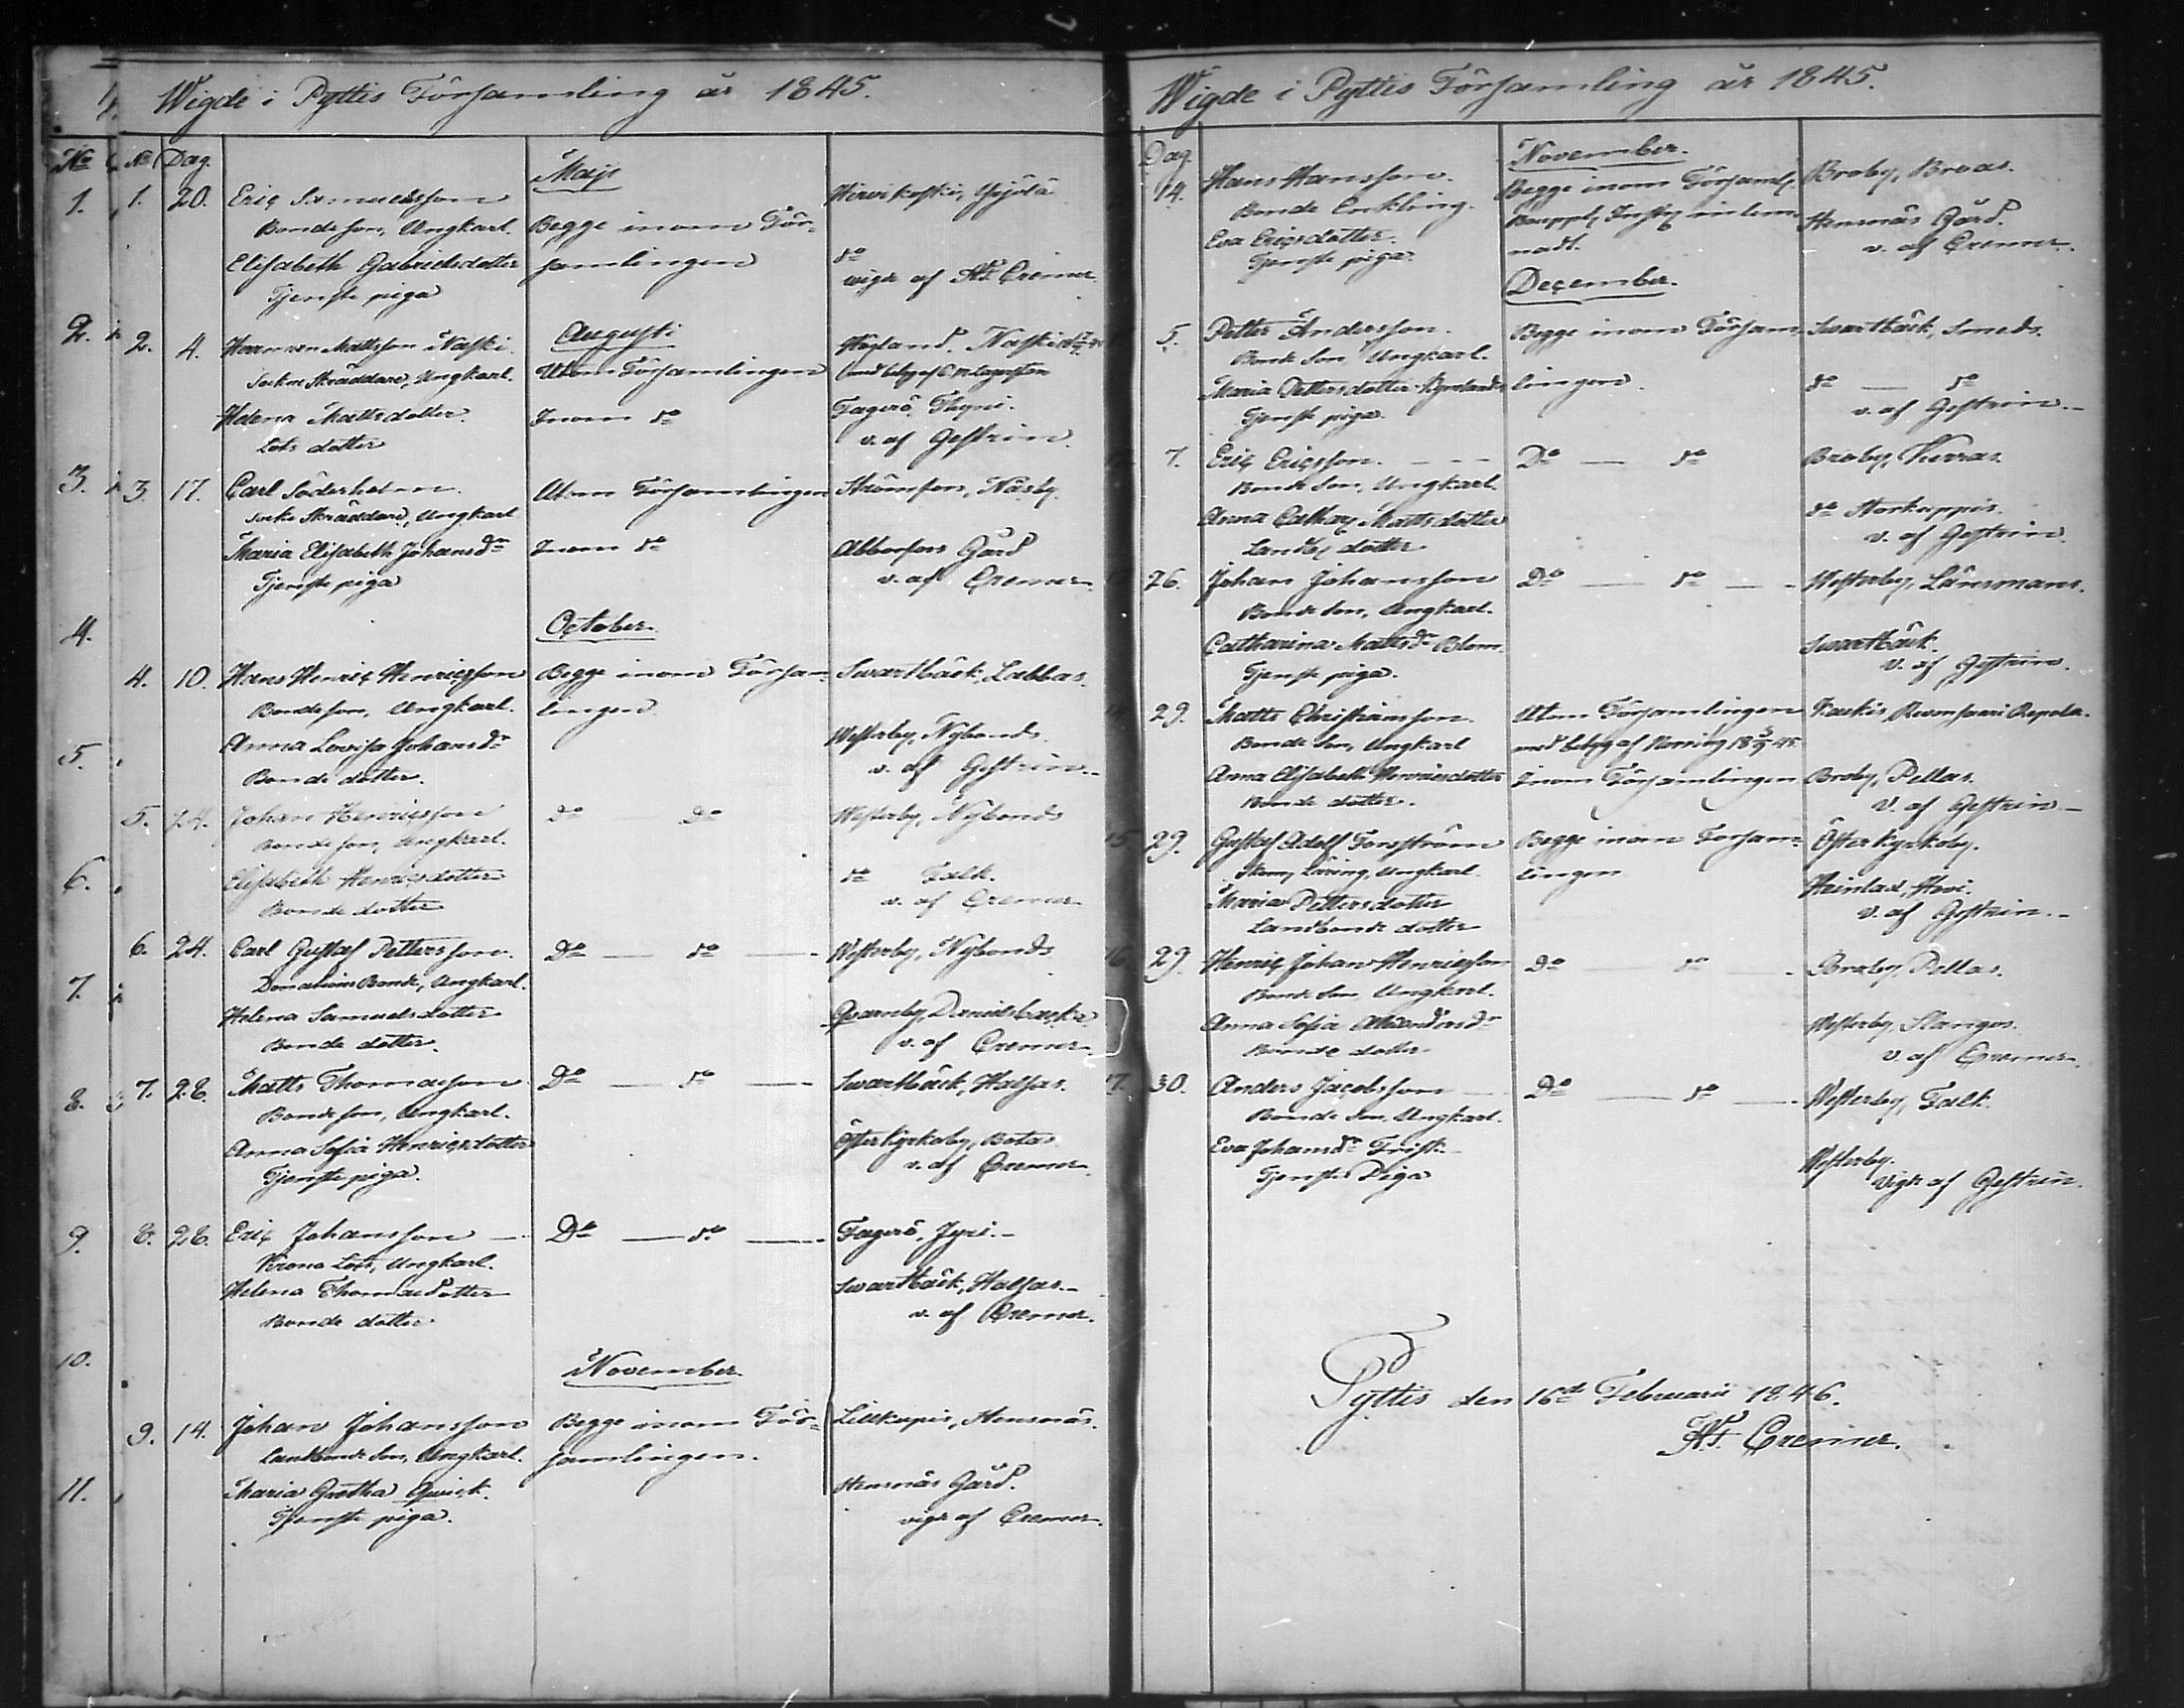 Wigde i Pyttis Församling år 1845.
No No Dag.
Maji
1. 1. 20. Eric Samuelsson Hirvikoski, Yrjölä
Bondeson, Ungkarl. Begge inom För-
Elisabeth Gabrielsdotter samlingen do
Tjenste piga vigde af Cremer.
2. Augusti
2. 4. Herrman Mattsson Naski.
Sockne Skräddare, Ungkarl. Utom Församlingen
Helena Mattsdotter. Inom do Fagerö,
Lots dotter v. af Gestrin
3. 3. 17. Carl Söderholm Utom Församlingen Strömfors, Näsby.
Sockne Skräddare, Ungkarl
Maria Elisabeth Johansdr Inom do Abborfors Gård
Tjenste piga v. af Cremer.
4. October.
4. 10. Hans Henric Henricsson Begge inom Försam- Swartbäck, Labbas.
Bondeson, Ungkarl. lingen
5. Anna Lovisa Johansdr Westerby, Nybonds
Bonde dotter. v. af Gestrin.
5. 24. Johan Henricsson do do Westerby, Nybonds
Bondeson, Ungkarl.
6. Elisabeth Henricsdotter do Falk.
Bonde dotter v. af Cremer
6. 24. Carl Gustaf Pettersson. Do — do — Westerby, Nybonds
7. Donations Bonde, Ungkarl.
Helena Samuelsdotter Qvarnby, Danielsbacka
Bonde dotter. v. af Cremer.
8. 7. 28. Matts Thomasson Do — do — Swartbäck, Halfas.
Bondeson, Ungkarl.
Anna Sofia Henricsdotter Österkyrkoby, Botas
Tjenste piga. v. af Cremer
9. 8. 28. Eric Johansson — Do — do — Fagerö, Jyri.
Krono Lots, Ungkarl.
Helena Thomasdotter Swartbäck, Halfas.
Bonde dotter v. af Cremer.
10. November
9. 14. Johan Johansson Begge inom För- Lillkupis, Hensnäs.
Landbonde Son, Ungkarl. samlingen.
11. Maria Gretha Qwick. Hensnäs Gård.
Tjenste piga. vigde af Cremer.
Wigde i Pyttis Församling år 1845.
Dag. November.
14. Hans Hansson. Begge inom Församl. Broby, Broas.
Bonde Enkling. Hensnäs Gård.
Eva Ericsdotter. v. af Cremer.
Tjenste piga.
December.
5. Petter Andersson. Begge inom Försam- Swartbäck, Smeds.
Bonde Son, Ungkarl.
Maria Pettersdotter lingen. do — do
Tjenste piga. v. af Gestrin.
7. Eric Ericsson. Do — do Broby,
Bonde Son, Ungkarl.
Anna Cathar. Mattsdotter do Storkuppis.
Landb. dotter v. af Gestrin.
26. Johan Johansson Do — do — Westerby, Länsmans.
Bonde Son, Ungkarl.
Catharina Mattsdr Blom Swartbäck.
Tjenste piga. v. af Gestrin.
29. Matts Christiansson. Utom Församlingen
Bonde Son, Ungkarl
Anna Elisabeth Henricsdotter Inom Församlingen Broby, Pellas.
Bonde dotter. v. af Gestrin
15 29. Gustaf Adolf Forsström Begge inom Försam- Österkyrkoby.
Ungkarl lingen
Maria Pettersdotter Heinlax,
Landbonde dotter v. af Gestrin.
16 29. Henric Johan Henricsson Do do Broby, Pellas.
Bonde Son, Ungkarl.
Anna Sofia Alexandersdr Westerby, Slangos.
Bonde dotter v. af Cremer.
17. 30. Anders Jacobsson Do — do — Westerby, Falk.
Bonde Son, Ungkarl.
Eva Johansdr Frisk. Westerby.
Tjenste Piga vigde af Gestrin.
Pyttis den 16de Februarii 1846.
Cremer.